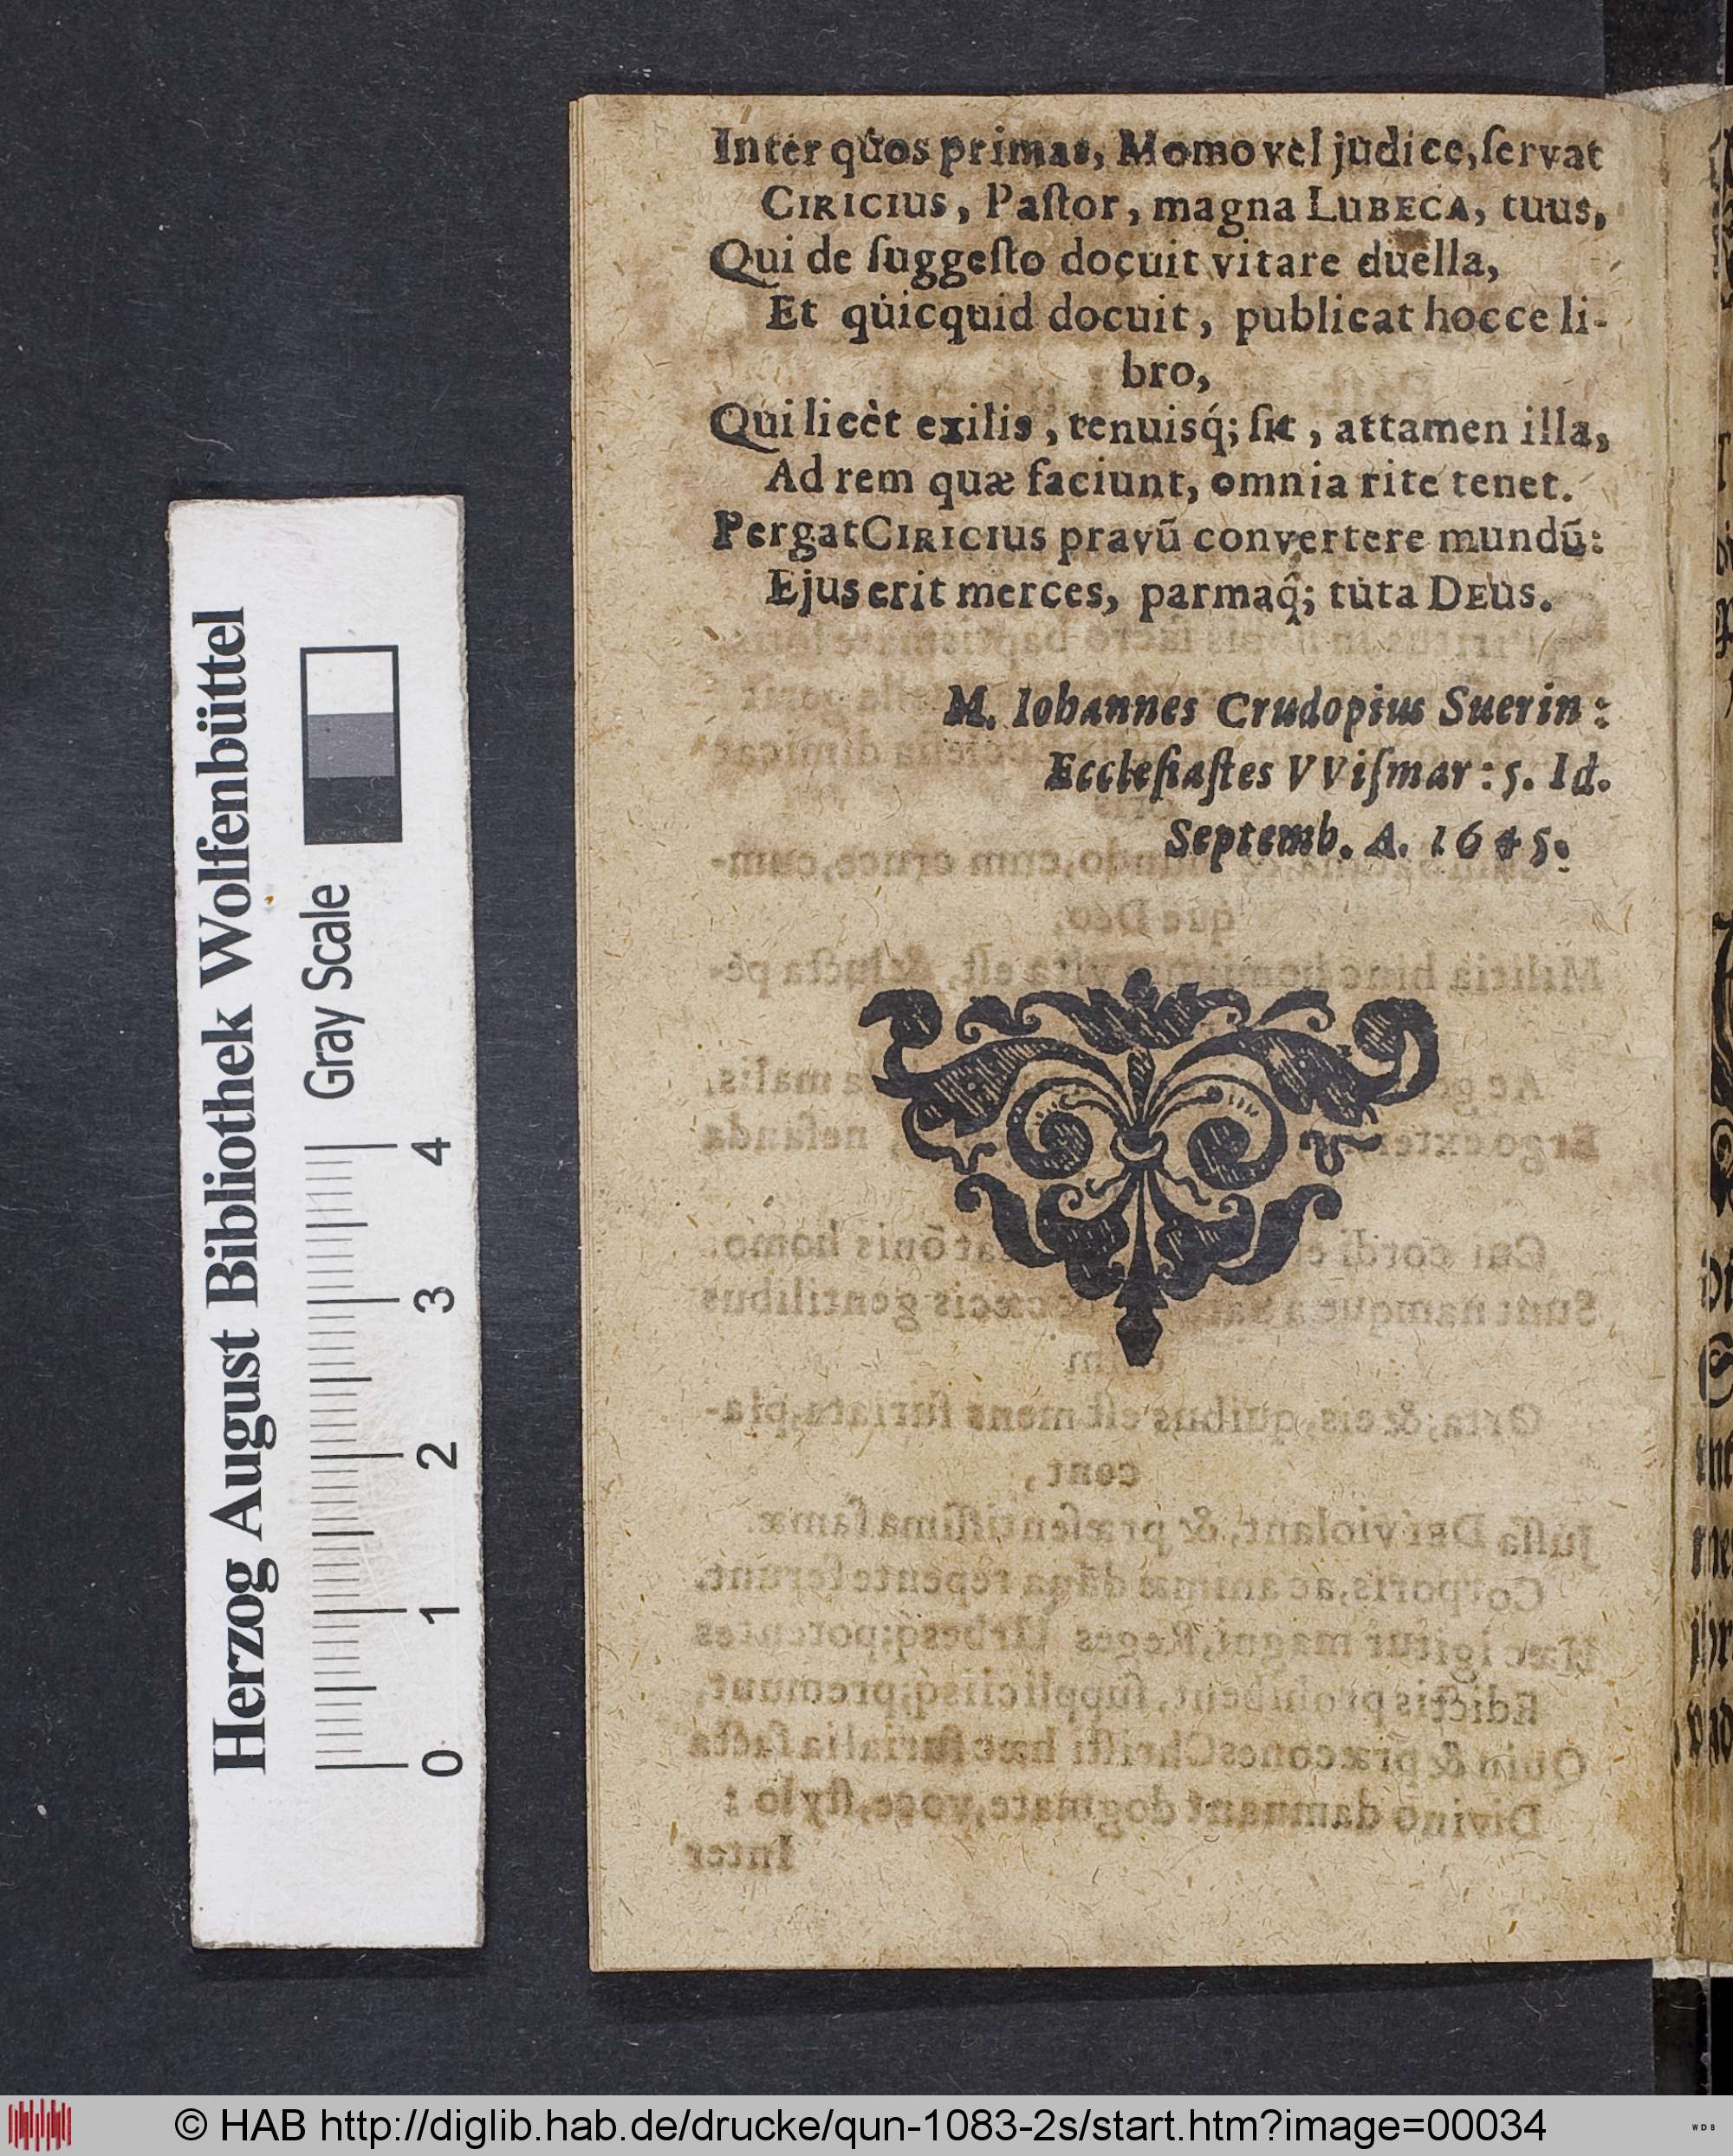 Inter quos primas, Momo vel judice, ſervat
CIRICIUS, Paſtor, magna LUBECA, tuus,
Qui de ſuggeſto docuit vitare duella,
Et quicquid docuit, publicat hocce li-
bro,
Qui licèt exilis, tenuisq́; ſit, attamen illa,
Ad rem quæ faciunt, omnia rite tenet.
Pergat CIRICIUS pravũ convertere mundũ:
Ejus erit merces, parmaq̂; tuta DEUS.
M. Iohannes Crudopius Suerin:
Eccleſiaſtes VViſmar: 5. Id.
Septemb. A. 1645.
Herzog August Bibliothek Wolfenbüttel
Gray Scale
0 1 2 3 4
© HAB http://diglib.hab.de/drucke/qun-1083-2s/start.htm?image=00034